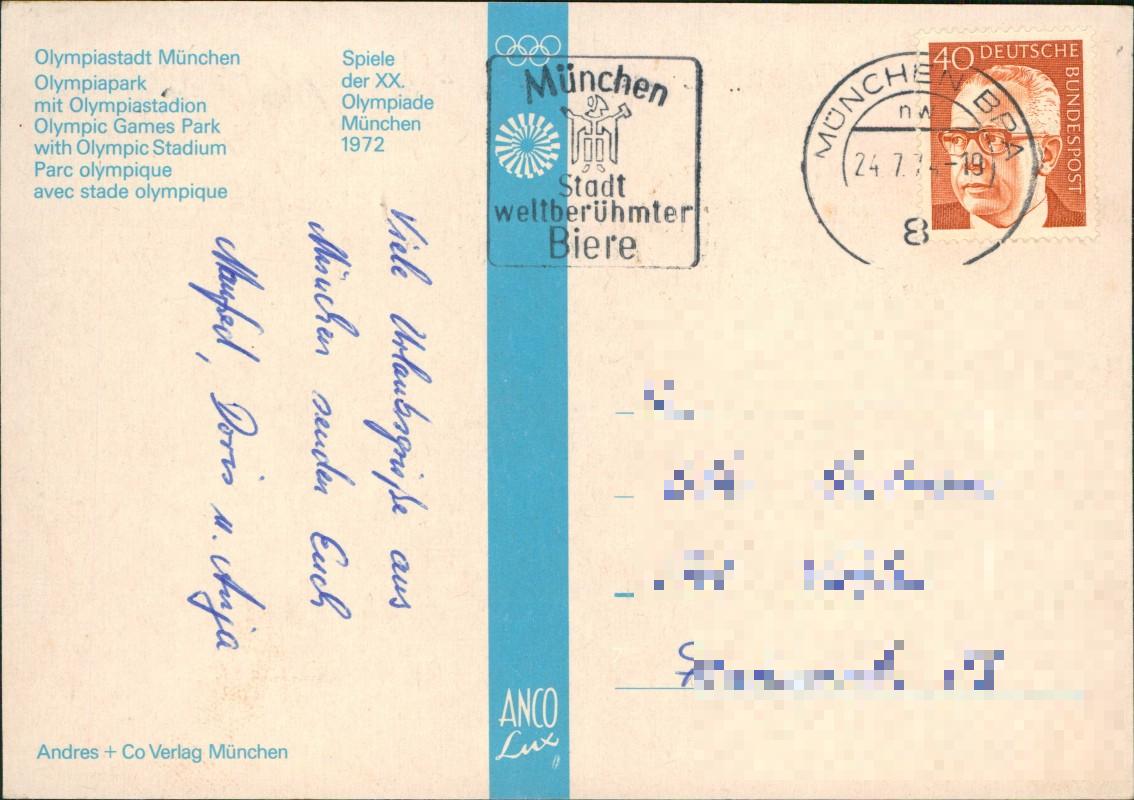 Olympiastadt München
Olympiapark
mit Olympiastadion
Olympic Games Park
with Olympic Stadium
Parc olympique
avec stade olympique
Spiele
der XX.
Olympiade
München
1972
München
Stadt
weltberühmter
Biere
MÜNCHEN BPA
nw
24.7.74-19
8
40 DEUTSCHE
BUNDESPOST
Viele Urlaubsgrüße aus
München senden Euch
Manfred, Doris u. Anja
ANCO
Lux
Andres + Co Verlag München